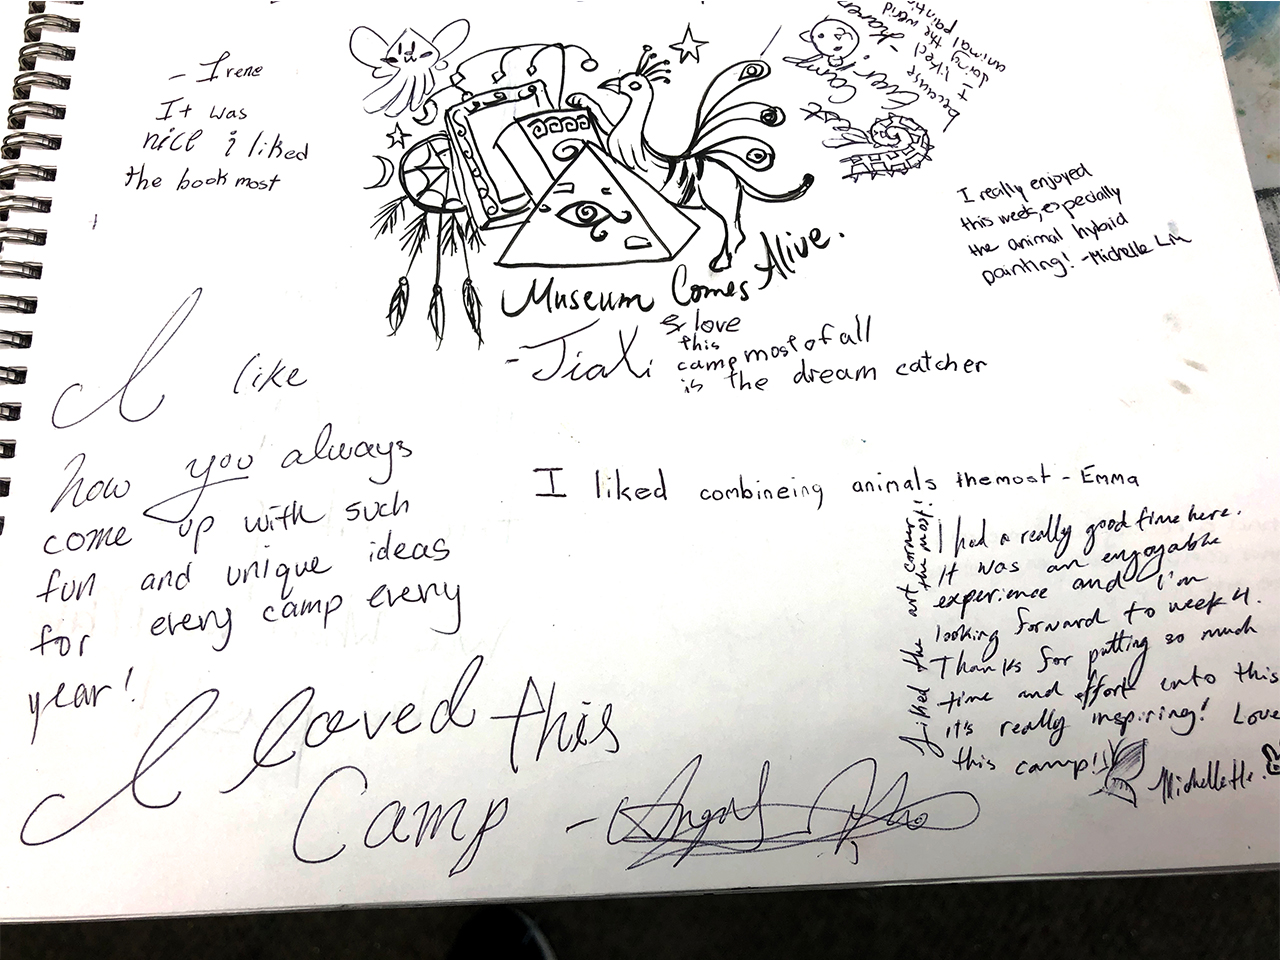 - Irene
It was
nice i liked
the book most
Museum Comes Alive.
- JiaXi
& love
this
camp most of all
is the dream catcher
best
camp
Ever!
because
I liked
doing the weird
animal painting
I really enjoyed
this week, especially
the animal hybrid
painting! - Michelle Lin
I like
how you always
come up with such
fun and unique ideas
for every camp every
year!
I loved this
Camp
I liked combineing animals the most - Emma
I had a really good time here.
It was an enjoyable
experience and I'm
looking forward to week 4.
Thanks for putting so much
time and effort into this
it's really inspiring! Love
this camp!
Michelle He.
Liked the art corner
the most!